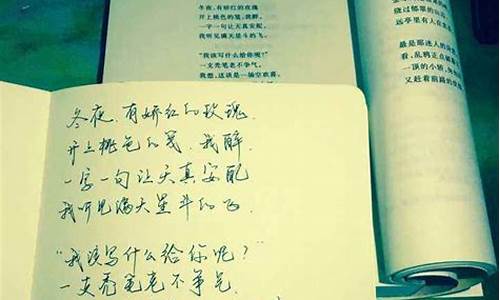 冬夜，有娇红的玫瑰
开上桃色的笺，我醉，
一字一句让天真安配
我听见满天星斗的飞。
“我该写什么给你呢？”
一支秃笔老不争气，
我想，这该是一场空欢喜，
绕过郁翠的
远亭里有人在
最是那迷人的
看，乱鸦正点
一顶的小轿，
又赶着前路的
冬夜，有娇红的玫瑰
开上桃色的笺，我醉，
一字一句让天真安配
我听见满天星斗的飞.
“我该写什么给你呢？”
一支秃笔老不争气.